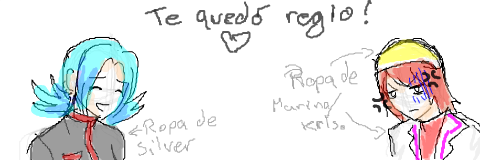 Te quedó regio!
Ropa de
Silver
Ropa de
Marina/
Kris.